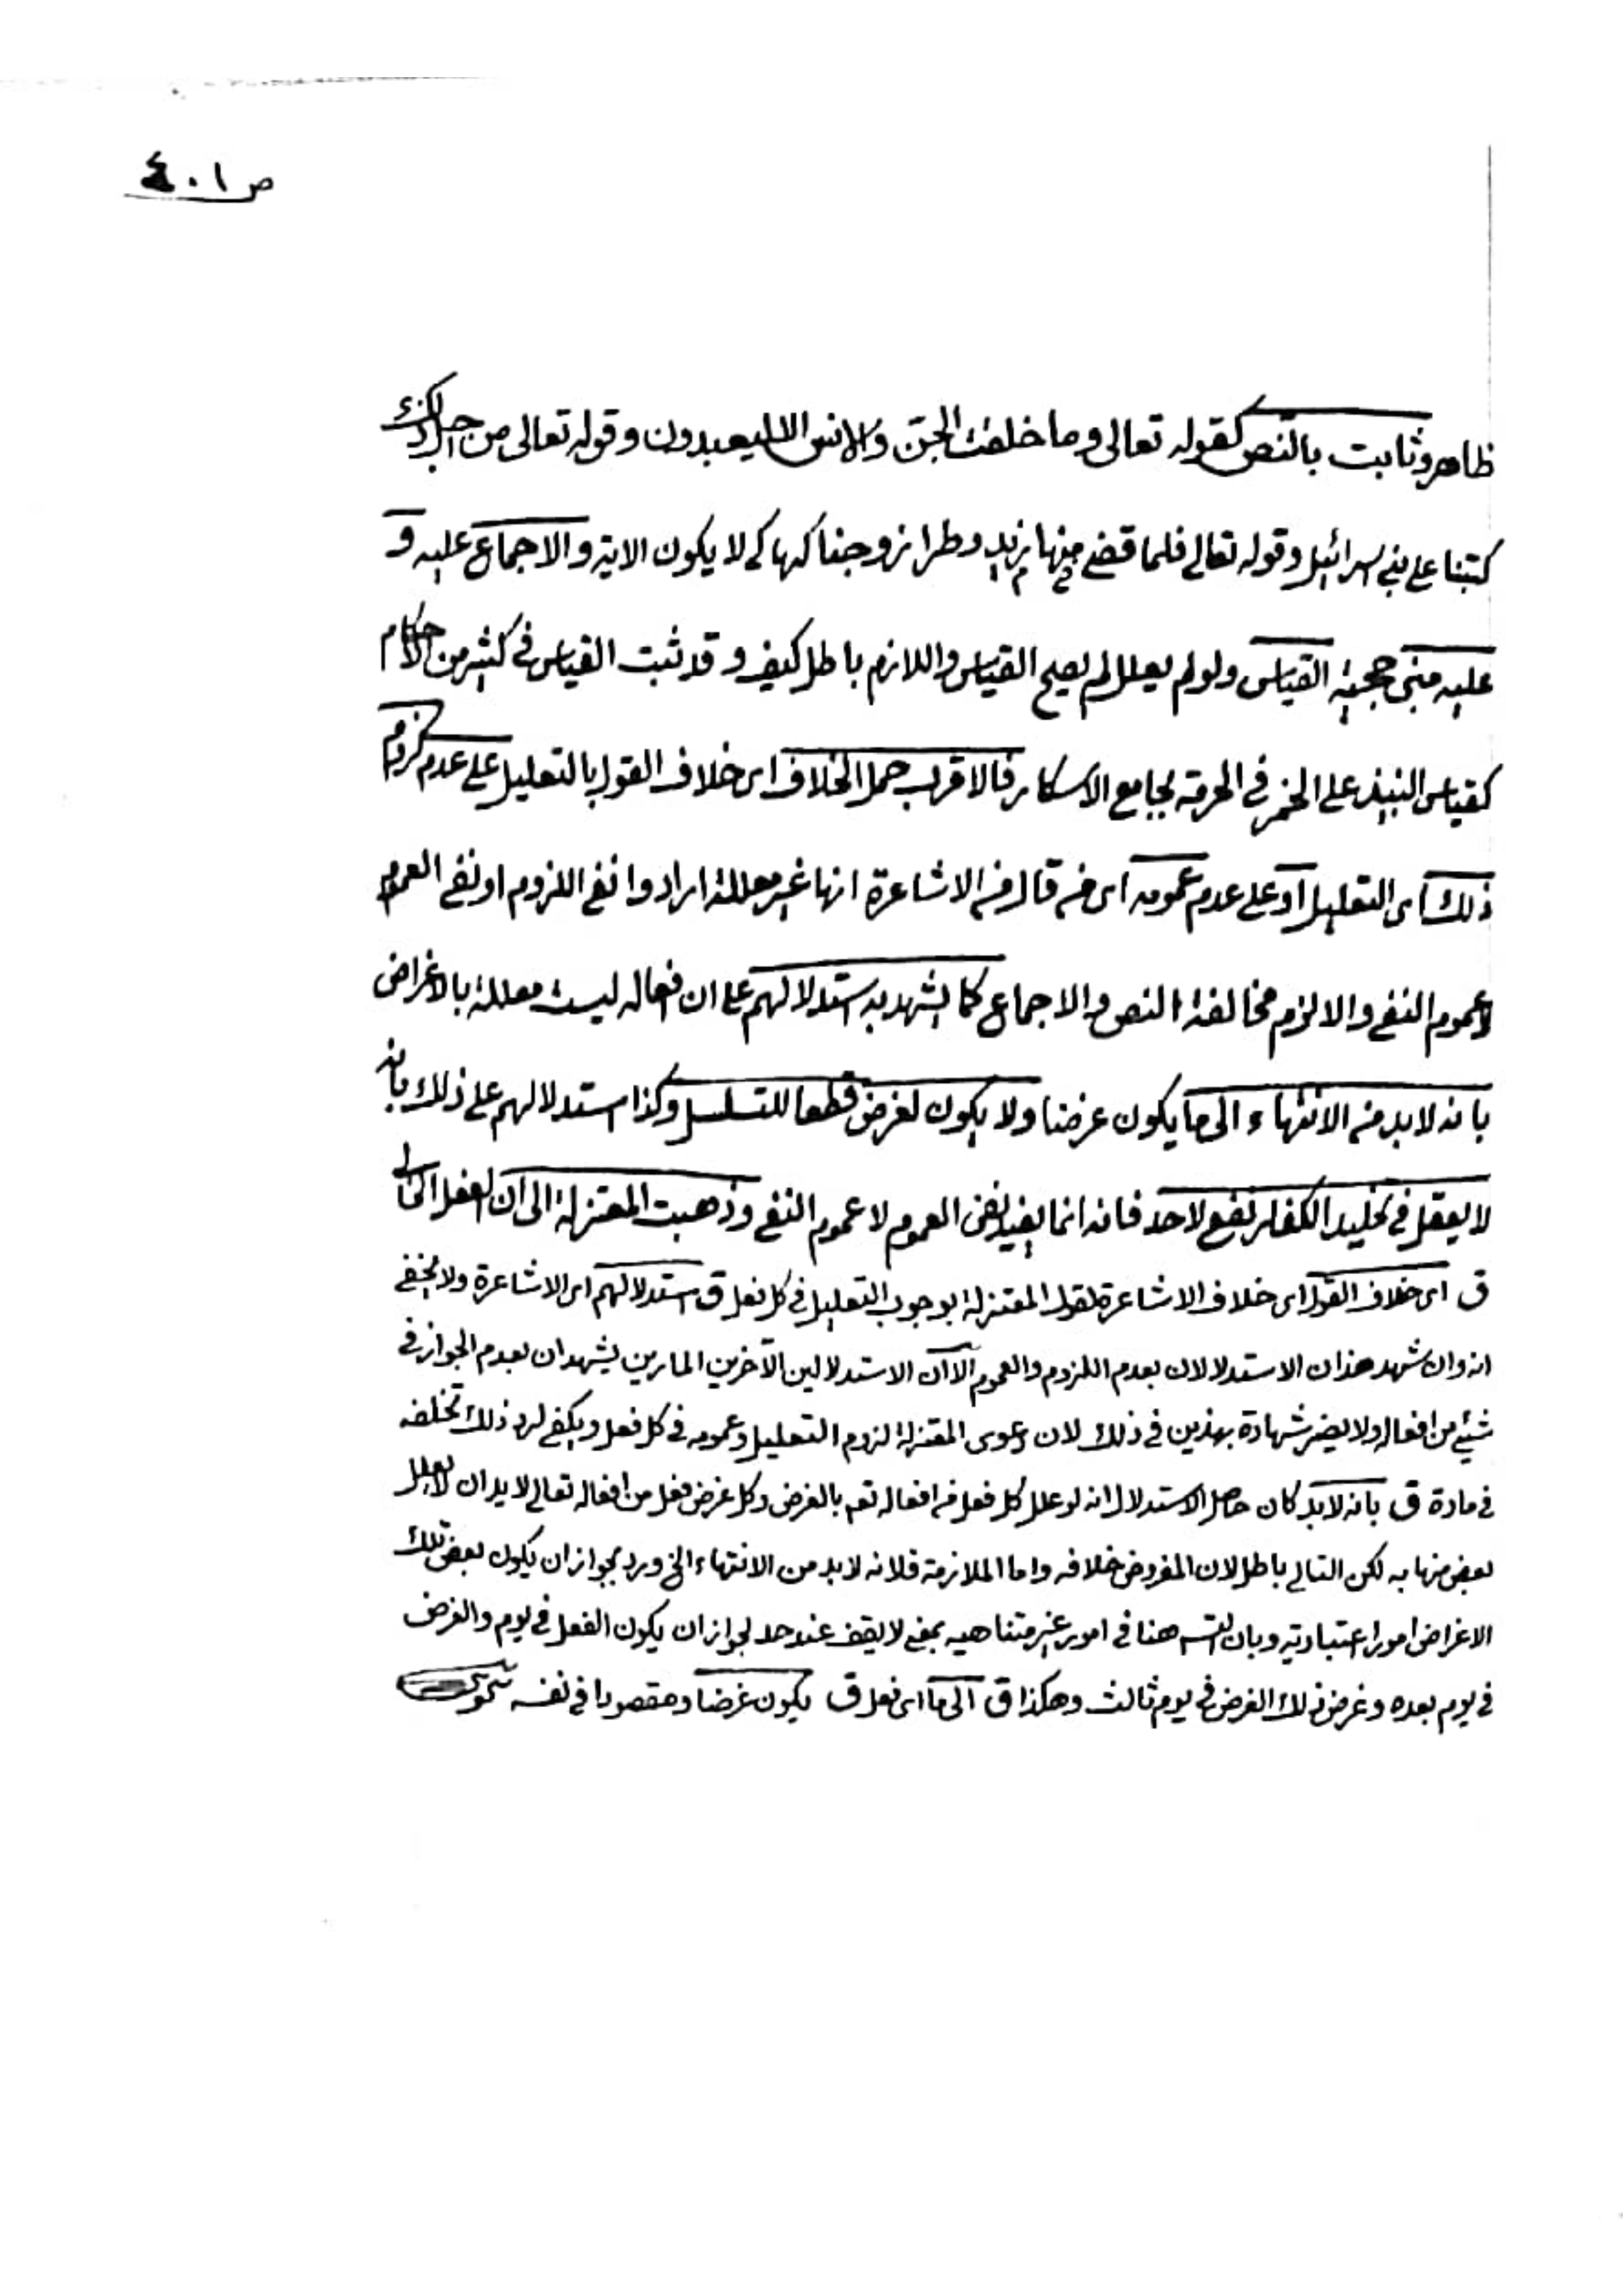 ص ٤٠١
ظاهر وثابت بالنص كقوله تعالى وما خلقت الجن والانس الا ليعبدون وقوله تعالى من اجل ذلك
كتبنا على بني اسرائيل وقوله تعالى فلما قضى منها زيد وطرا زوجناكها كي لا يكون الاية والاجماع عليه و
عليه مبنى حجية القياس ولو لم يعلل لم يصح القياس واللازم باطل كيف وقد ثبت القياس في كثير من الاحكام
كقياس النبيذ على الخمر في الحرمة بجامع الاسكار فالاقرب حمل الخلاف اى خلاف القول بالتعليل على عدم لزوم
ذلك اى التعليل او على عدم عمومه اى من قال من الاشاعرة انها غير معللة ارادوا نفي اللزوم او نفي العموم
لا عموم النفي والا لزم مخالفة النص والاجماع كما يشهد به استدلالهم على ان افعاله ليست معللة بالاغراض
بانه لا بد من الانتهاء الى ما يكون غرضا ولا يكون لغرض قطعا للتسلسل وكذا استدلالهم على ذلك بانه
لا يعقل في تخليد الكفار نفع لاحد فانه انما يفيد نفى العموم لا عموم النفي وذهبت المعتزلة الى ان الفعل الخالى
ق اى خلاف القول اى خلاف الاشاعرة لقول المعتزلة بوجوب التعليل في كل فعل ق استدلالهم اى الاشاعرة ولا يخفى
انه وان شهد هذان الاستدلالان بعدم اللزوم والعموم الا ان الاستدلالين الآخرين المارين يشهدان بعدم الجواز في
شيئ من افعاله ولا يضر شهادة بهذين في ذلك لان دعوى المعتزلة لزوم التعليل وعمومه في كل فعل ويكفي لرد ذلك تخلفه
في مادة ق بانه لا بد كان حاصل الاستدلال انه لو علل كل فعل من افعاله تعم بالغرض وكل غرض فعل من افعاله تعالى لا بد ان لا يعلل
بعض منها به لكن التالي باطل لان المفروض خلافه واما الملازمة فلانه لا بد من الانتهاء الخ ورد بجواز ان يكون بعض تلك
الاغراض امورا اعتبارية وبان التسـ هنا في امور غير متناهية بمعنى لا يقف عند حد لجواز ان يكون الفعل في يوم والغرض
في يوم بعده وغرض ذلك الغرض في يوم ثالث وهكذا ق الى ما اى فعل ق يكون غرضا ومقصودا في نفسه